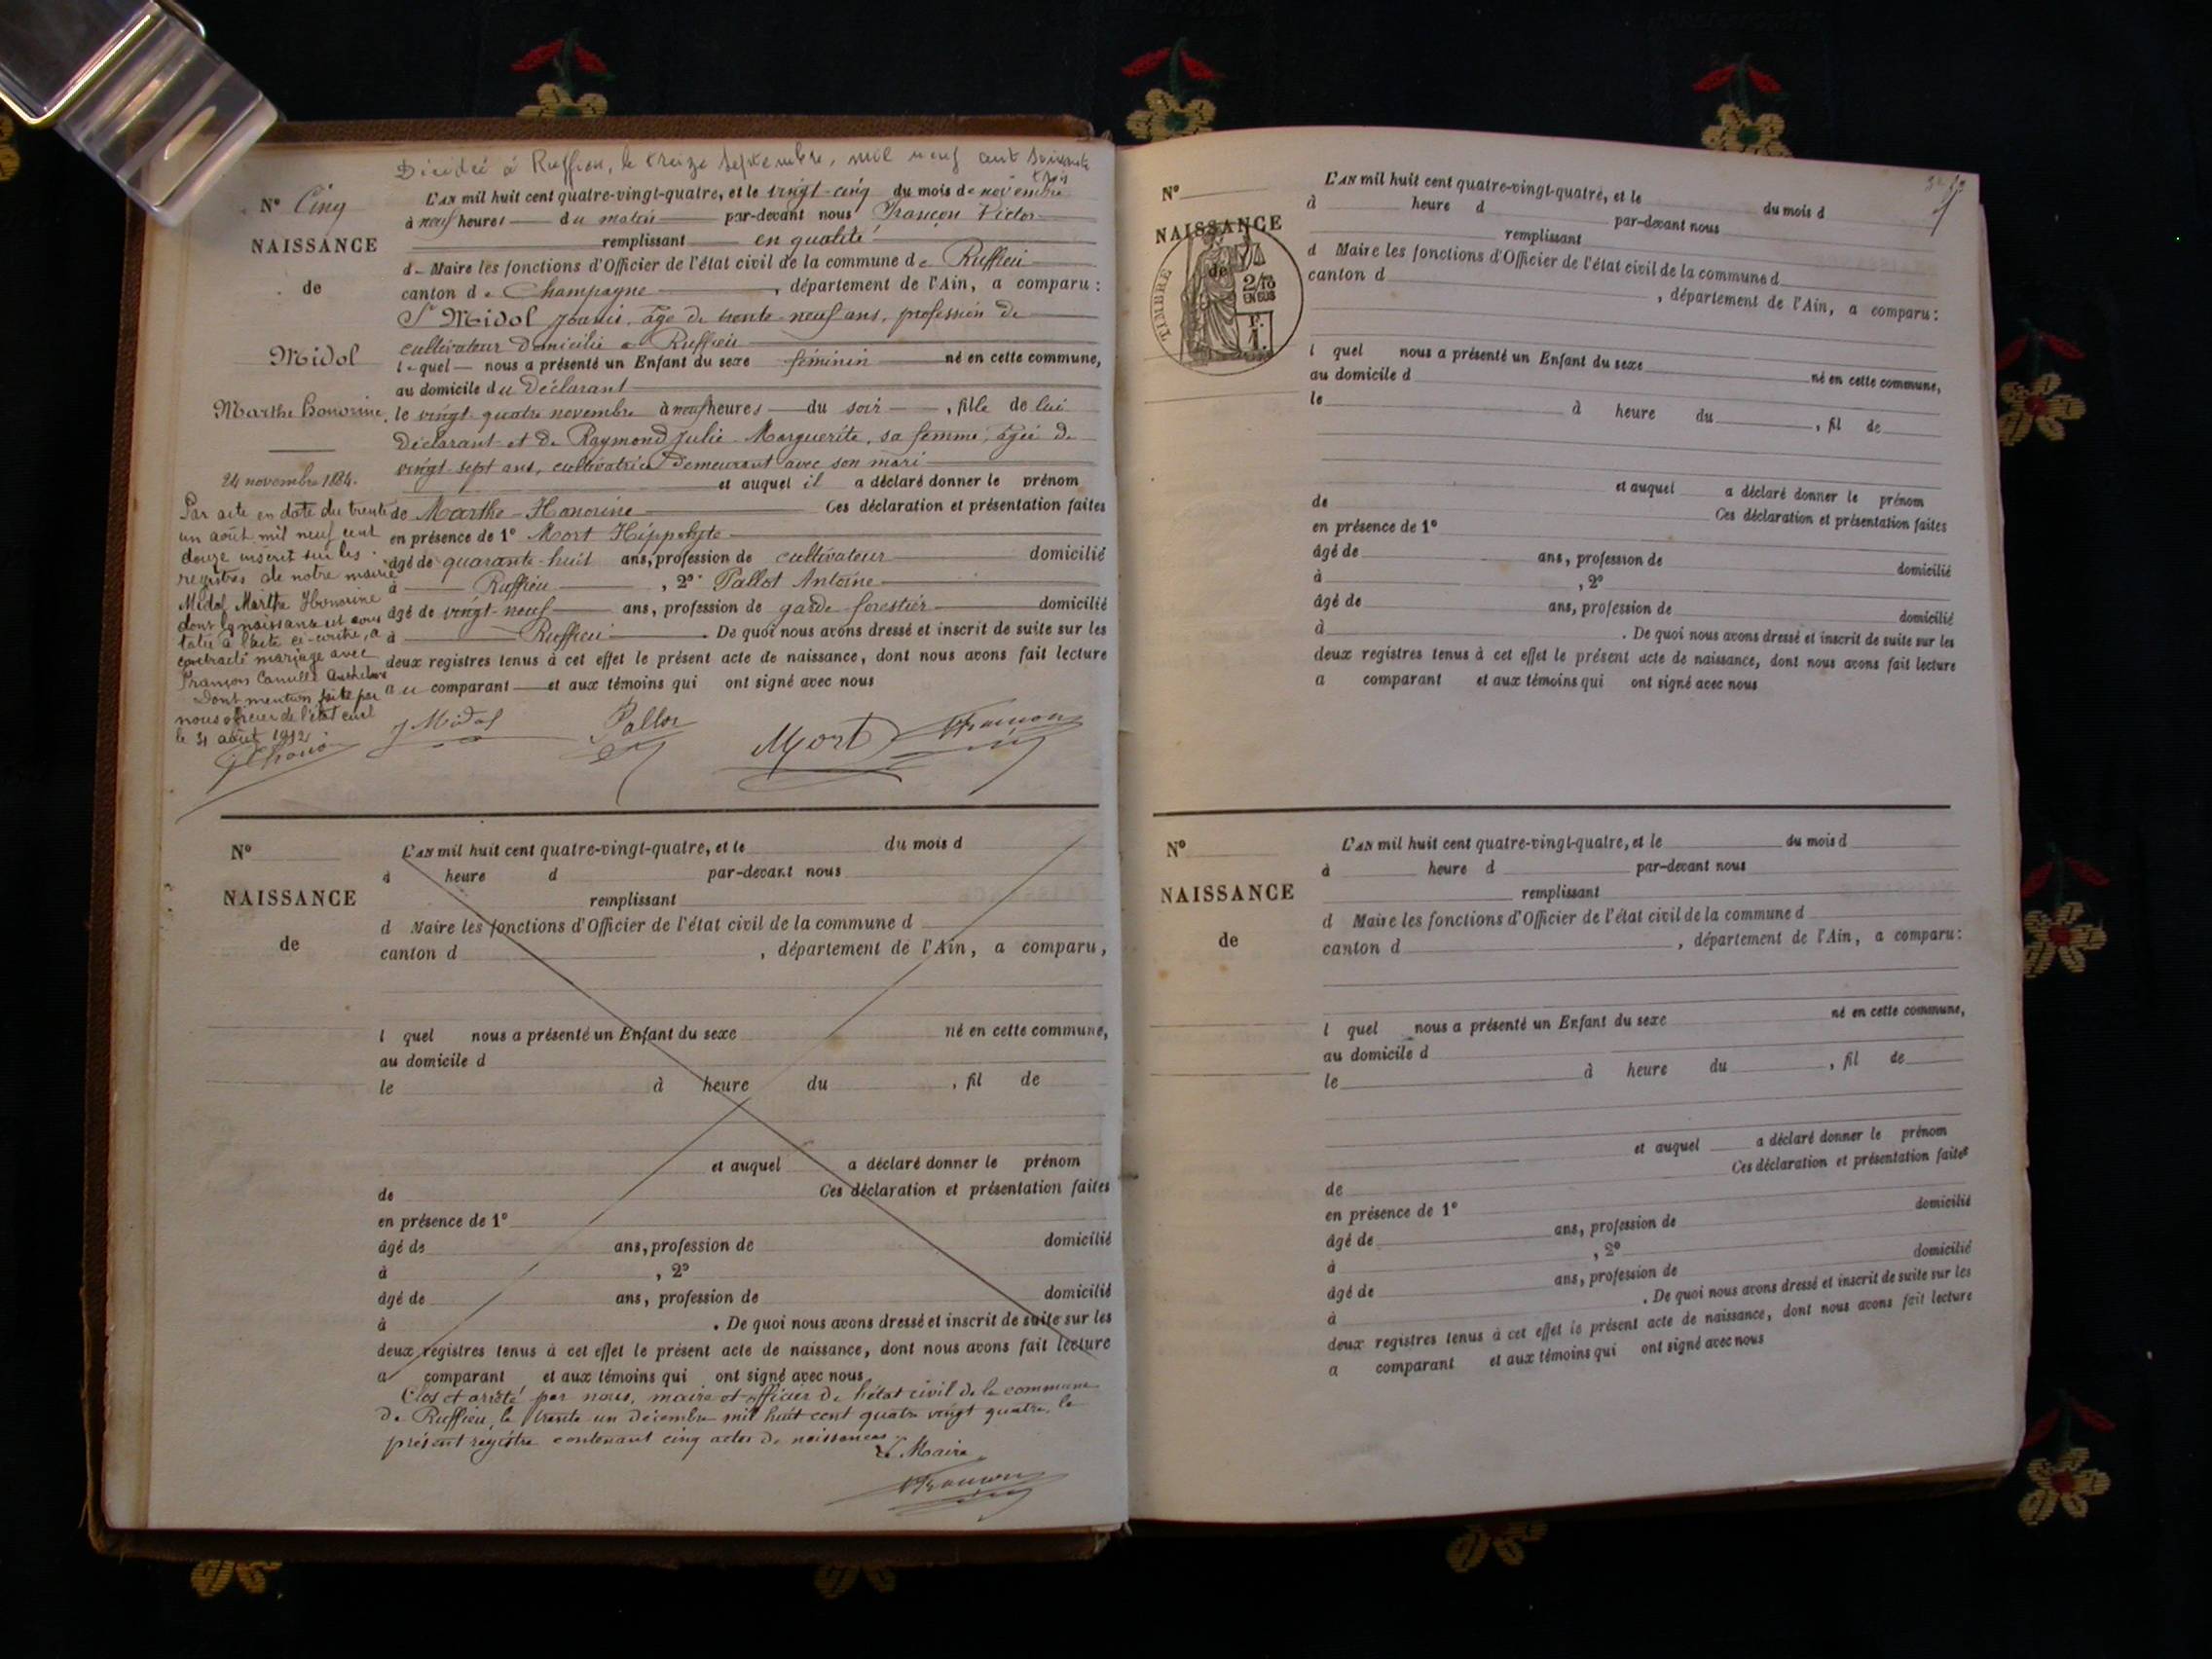 Décédée à Ruffieu, le treize Septembre, mil neuf cent soixante
trois
N° Cinq
NAISSANCE
de
Midol
Marthe Honorine.
24 novembre 1884.
Par acte en date du trente
un août mil neuf cent
douze inscrit sur les
registres de notre mairie
Midol Marthe Honorine
dont la naissance est cons
tatée à l'acte ci-contre, a
contracté mariage avec
Françon Camille Anthelme
Dont mention faite par
nous officier de l'état civil
le 31 août 1912.
L'AN mil huit cent quatre-vingt-quatre, et le vingt-cinq du mois de novembre
à neuf heures du matin par-devant nous Françon Victor
remplissant en qualité
de Maire les fonctions d'Officier de l'état civil de la commune de Ruffieu
canton de Champagne, département de l'Ain, a comparu :
Sr Midol Joanis, âgé de trente-neuf ans, profession de
cultivateur domicilié à Ruffieu
lequel nous a présenté un Enfant du sexe féminin né en cette commune,
au domicile du Déclarant
le vingt-quatre novembre à neuf heures du soir, fille de lui
Déclarant et de Raymond Julie-Marguerite, sa femme, âgée de
vingt-sept ans, cultivatrice demeurant avec son mari
et auquel il a déclaré donner le prénom
de Marthe-Honorine Ces déclaration et présentation faites
en présence de 1° Mort Hippolyte
âgé de quarante-huit ans, profession de cultivateur domicilié
à Ruffieu, 2° Pallot Antoine
âgé de vingt-neuf ans, profession de garde forestier domicilié
à Ruffieu. De quoi nous avons dressé et inscrit de suite sur les
deux registres tenus à cet effet le présent acte de naissance, dont nous avons fait lecture
au comparant et aux témoins qui ont signé avec nous
J Midol Pallot Mort VFrançon
N°
NAISSANCE
de
L'AN mil huit cent quatre-vingt-quatre, et le du mois d
à heure d par-devant nous
remplissant
d Maire les fonctions d'Officier de l'état civil de la commune d
canton d , département de l'Ain, a comparu,
l quel nous a présenté un Enfant du sexe né en cette commune,
au domicile d
le à heure du , fil de
et auquel a déclaré donner le prénom
de Ces déclaration et présentation faites
en présence de 1°
âgé de ans, profession de domicilié
à , 2°
âgé de ans, profession de domicilié
à . De quoi nous avons dressé et inscrit de suite sur les
deux registres tenus à cet effet le présent acte de naissance, dont nous avons fait lecture
a comparant et aux témoins qui ont signé avec nous
Clos et arrêté par nous, maire et officier de l'état civil de la commune
de Ruffieu, le trente-un décembre mil huit cent quatre vingt quatre, le
présent registre contenant cinq actes de naissances
Le Maire
VFrançon
N°
NAISSANCE
de
TIMBRE
2/10
EN SUS
F.
1.
L'AN mil huit cent quatre-vingt-quatre, et le du mois d
à heure d par-devant nous
remplissant
d Maire les fonctions d'Officier de l'état civil de la commune d
canton d , département de l'Ain, a comparu :
l quel nous a présenté un Enfant du sexe né en cette commune,
au domicile d
le à heure du , fil de
et auquel a déclaré donner le prénom
de Ces déclaration et présentation faites
en présence de 1°
âgé de ans, profession de domicilié
à , 2°
âgé de ans, profession de domicilié
à . De quoi nous avons dressé et inscrit de suite sur les
deux registres tenus à cet effet le présent acte de naissance, dont nous avons fait lecture
a comparant et aux témoins qui ont signé avec nous
N°
NAISSANCE
de
L'AN mil huit cent quatre-vingt-quatre, et le du mois d
à heure d par-devant nous
remplissant
d Maire les fonctions d'Officier de l'état civil de la commune d
canton d , département de l'Ain, a comparu :
l quel nous a présenté un Enfant du sexe né en cette commune,
au domicile d
le à heure du , fil de
et auquel a déclaré donner le prénom
de Ces déclaration et présentation faites
en présence de 1°
âgé de ans, profession de domicilié
à , 2°
âgé de ans, profession de domicilié
à . De quoi nous avons dressé et inscrit de suite sur les
deux registres tenus à cet effet le présent acte de naissance, dont nous avons fait lecture
a comparant et aux témoins qui ont signé avec nous